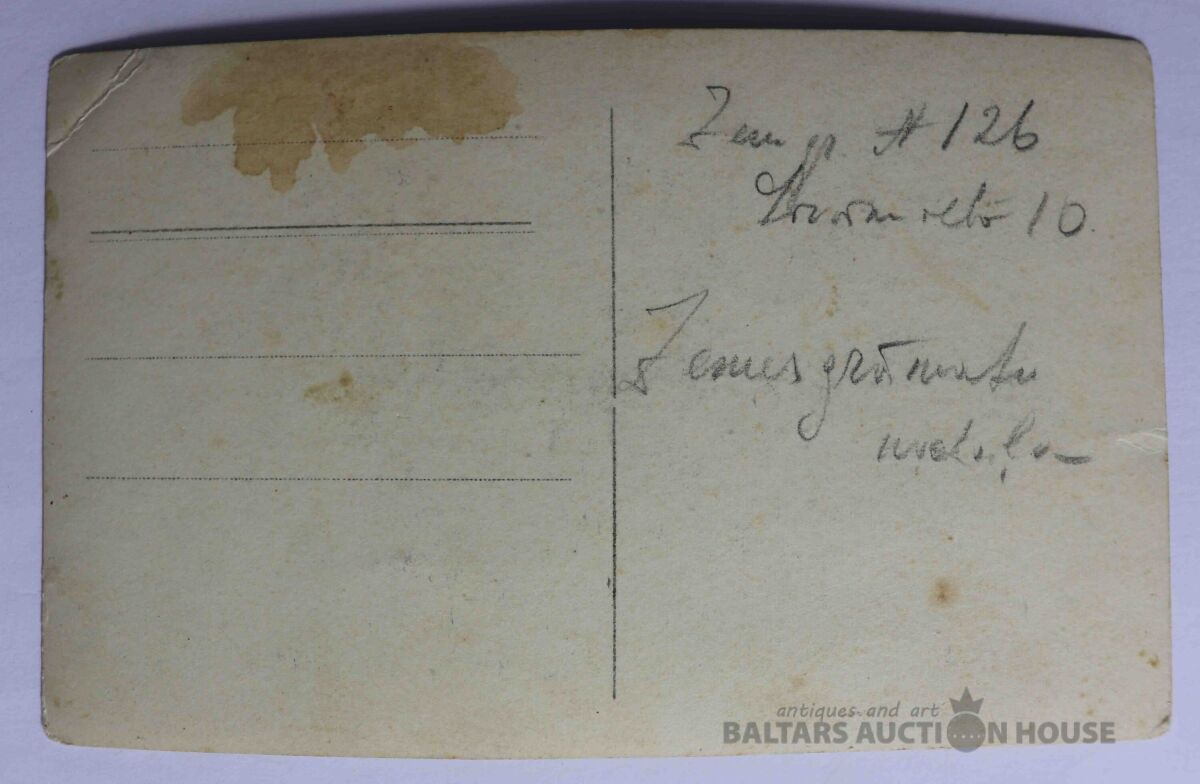 Zem gr. # 126
10
Zemes grāmatu
nodaļa
antiques and art
BALTARS AUCTION HOUSE